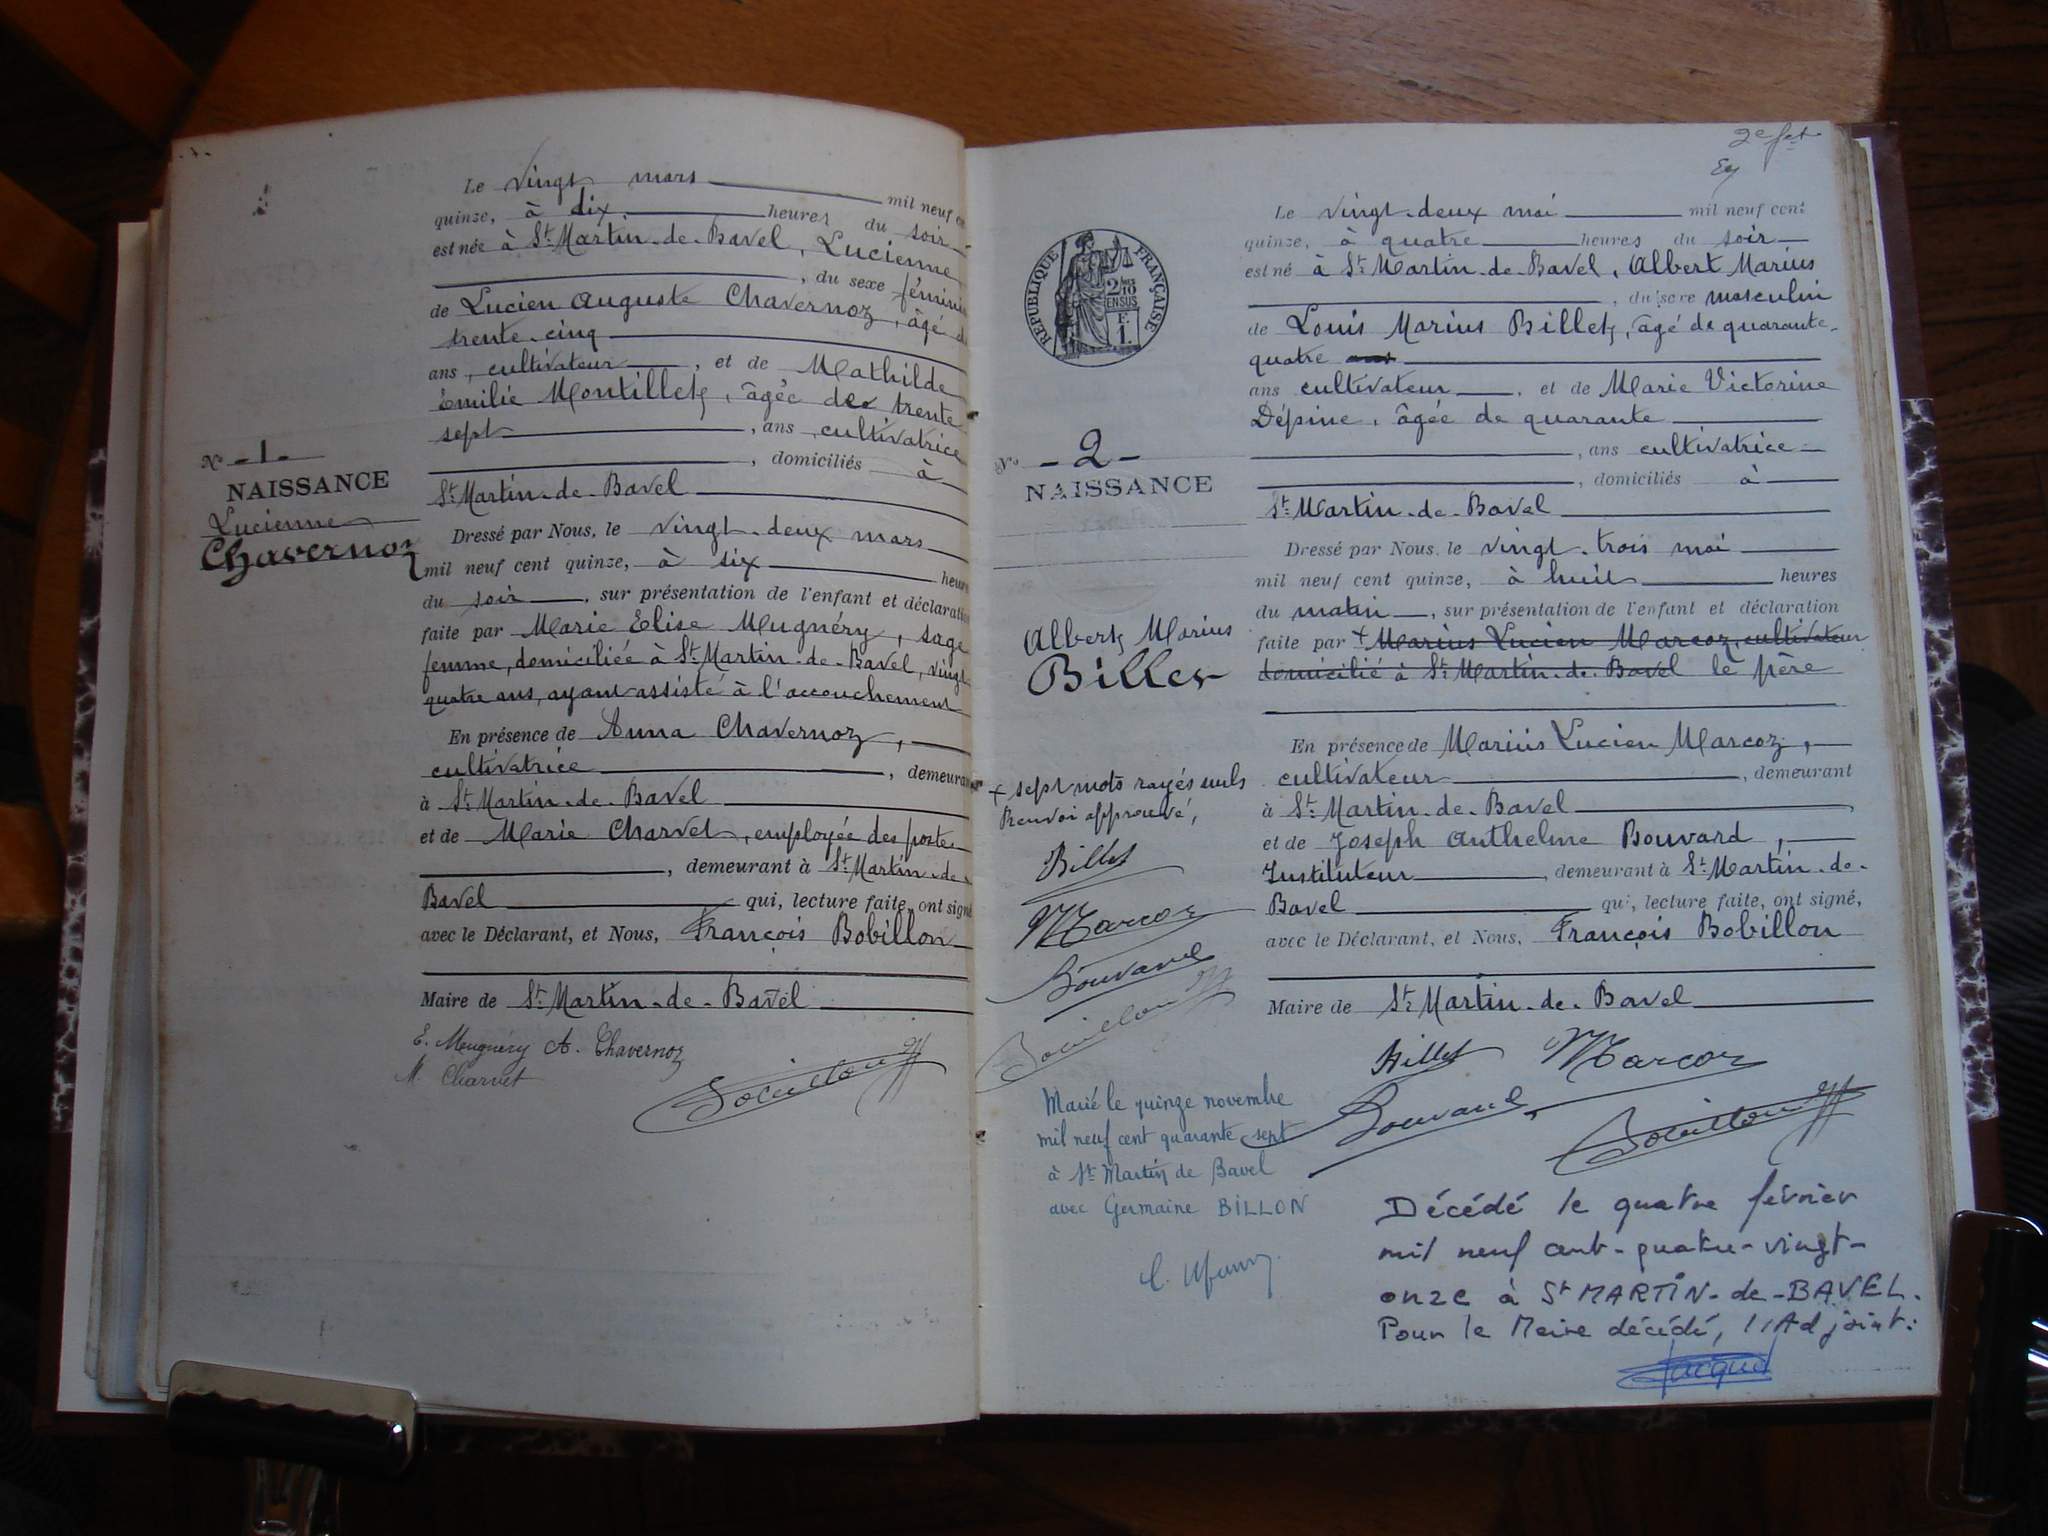 Le vingt mars mil neuf ce
quinze, à dix heures du soir
est née à St Martin-de-Bavel, Lucienne
, du sexe féminin
de Lucien Auguste Chavernoz, âgé de
trente-cinq
ans, cultivateur, et de Mathilde
Émilie Montillet, âgée de trente
sept, ans, cultivatrice
, domiciliés à
St Martin-de-Bavel
N° -1-
NAISSANCE
Lucienne
Chavernoz
Dressé par Nous, le vingt-deux mars
mil neuf cent quinze, à six heures
du soir, sur présentation de l'enfant et déclaration
faite par Marie Elise Mugnéry, sage
femme, domiciliée à St Martin-de-Bavel, vingt
quatre ans, ayant assisté à l'accouchement
En présence de Anna Chavernoz,
cultivatrice, demeurant
à St Martin-de-Bavel
et de Marie Charvet, employée des postes
, demeurant à St Martin-de-
Bavel qui, lecture faite, ont signé
avec le Déclarant, et Nous, François Bobillon
Maire de St Martin-de-Bavel
E. Mugnéry A. Chavernoz
M. Charvet
Bobillon
2e f
RÉPUBLIQUE FRANÇAISE
Le vingt-deux mai mil neuf cent
quinze, à quatre heures du soir
est né à St Martin-de-Bavel, Albert Marius
, du sexe masculin
de Louis Marius Billet, âgé de quarante-
quatre ans
ans cultivateur, et de Marie Victorine
Dépine, âgée de quarante
, ans cultivatrice
, domiciliés à
St Martin-de-Bavel
N° -2-
NAISSANCE
Albert Marius
Billet
Dressé par Nous, le vingt-trois mai
mil neuf cent quinze, à huit heures
du matin, sur présentation de l'enfant et déclaration
faite par + Marius Lucien Marcoz, cultivateur
domicilié à St Martin-de-Bavel le père
En présence de Marius Lucien Marcoz,
cultivateur, demeurant
à St Martin-de-Bavel
et de Joseph Anthelme Bouvard,
Instituteur, demeurant à St Martin-de-
Bavel qui, lecture faite, ont signé,
avec le Déclarant, et Nous, François Bobillon
Maire de St Martin-de-Bavel
+ sept mots rayés nuls
Renvoi approuvé,
Billet
Marcoz
Bouvard
Bobillon
Billet Marcoz
Bouvard
Bobillon
Marié le quinze novembre
mil neuf cent quarante sept
à St Martin de Bavel
avec Germaine BILLON
Décédé le quatre février
mil neuf cent-quatre-vingt-
onze à St MARTIN-de-BAVEL.
Pour le Maire décédé, l'Adjoint:
Jacquet